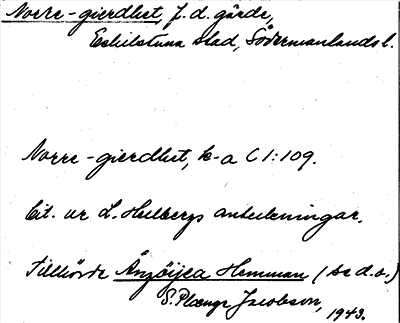 Norre-gierdhet, f.d. gärde,
Eskilstuna stad, Södermanlands l.
Norre-gierdhet, k-a C 1:109.
Cit. ur L. Hellbergs anteckningar.
Tillhörde Änzöijea Hemman (se d.o.)
S. Plænge Jacobson,
1943.